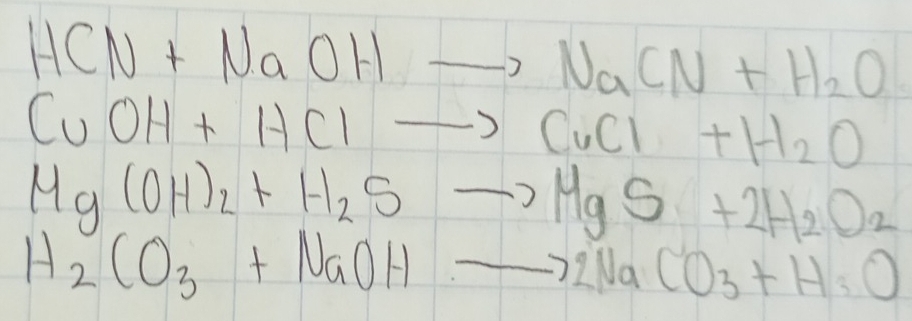 HCN + NaOH → NaCN + H₂O
CuOH + HCl → CuCl + H₂O
Mg(OH)₂ + H₂S → MgS + 2H₂O₂
H₂CO₃ + NaOH → 2NaCO₃ + H₂O